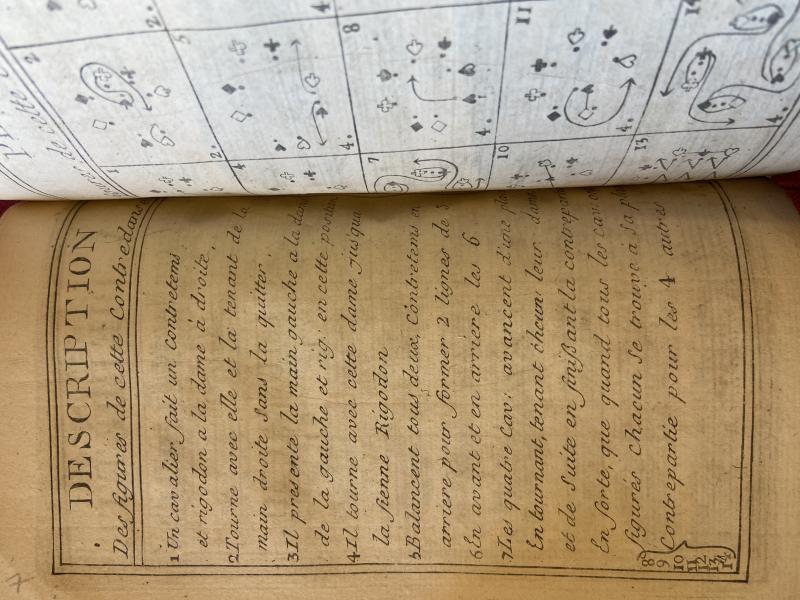 DESCRIPTION
Des figures de cette Contredanse
1 Un cavalier fait un contretems
et rigodon a la dame à droite,
2 Tourne avec elle et la tenant de la
main droite sans la quitter,
3 Il presente la main gauche a la dame
de la gauche et rig: en cette position
4 Il tourne avec cette dame jusqu'a
la sienne Rigodon
5 Balancent tous deux, Contretems en
arriere pour former 2 lignes de
6 En avant et en arriere les 6
7 Les quatre Cav: avancent d'une
En tournant, tenant chcun: leur dame
et de Suite en finissant la contrepar
En sorte, que quand tous les cav. o
figurés chacun Se trouve à Sa
8 9 10 11 12 13 14 Contrepartie pour les 4 autres
7
1
2
2.
4
5
4.
7
8
4.
10
11
4.
13
14
4.